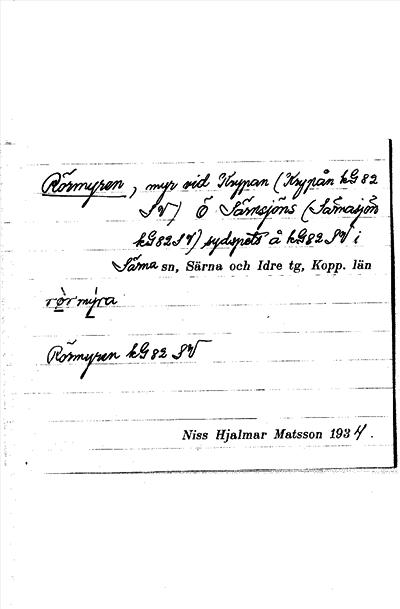 Rörmyren, myr vid Krypan (Krypån kG 82
SV) Ö Särnsjöns (Särnasjön
kG 82 SV) sydspets å kG 82 SV i
Särna sn, Särna och Idre tg, Kopp. län
rö̀rmýra
Rörmyren kG 82 SV
Niss Hjalmar Matsson 1934.